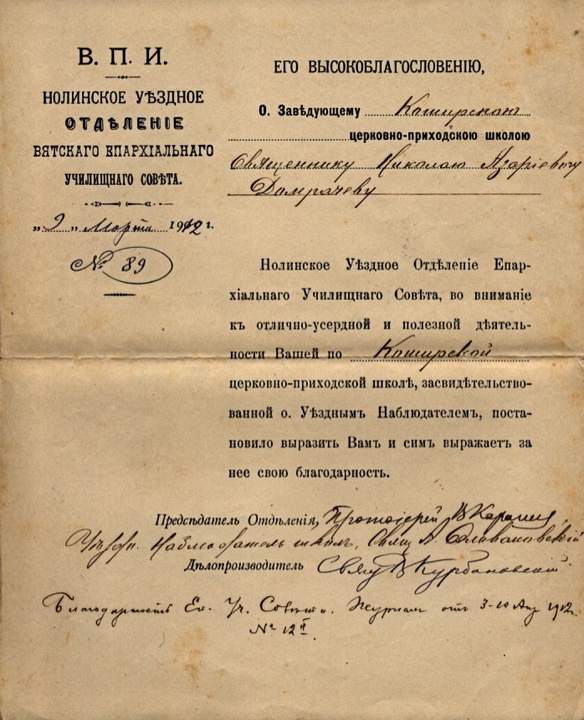 В. П. И.
НОЛИНСКОЕ УѢЗДНОЕ
ОТДѢЛЕНІЕ
ВЯТСКАГО ЕПАРХІАЛЬНАГО
УЧИЛИЩНАГО СОВѢТА.
„9„ Марта 1912 г.
№ 89
ЕГО ВЫСОКОБЛАГОСЛОВЕНІЮ,
О. Завѣдующему Коширскою
церковно-приходскою школою
Священнику Николаю Азаріевичу
Домрачеву
Нолинское Уѣздное Отдѣленіе Епар-
хіальнаго Училищнаго Совѣта, во вниманіе
къ отлично-усердной и полезной дѣятель-
ности Вашей по Коширской
церковно-приходской школѣ, засвидѣтельство-
ванной о. Уѣзднымъ Наблюдателемъ, поста-
новило выразить Вамъ и симъ выражаетъ за
нее свою благодарность.
Предсѣдатель Отдѣленія, Протоіерей В.
Наблюдатель школъ, Свящ.
Дѣлопроизводитель Свящ В Курбановскій
Благодарность Еп. Уч. Совѣта. Журнал от 3-10 Апр 1912 г.
№ 12